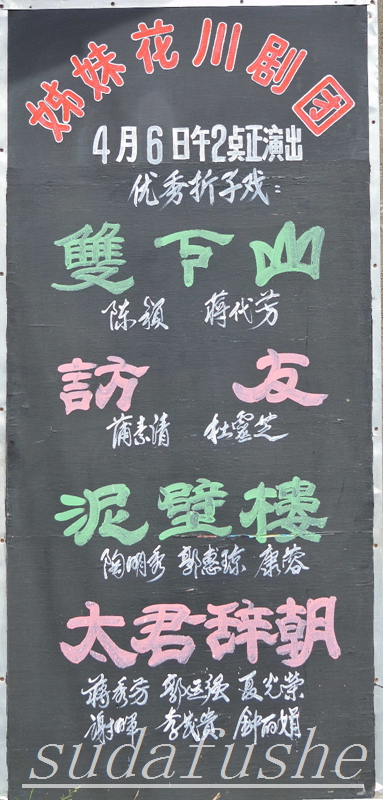 姊妹花川剧团
4月6日午2点正演出
优秀折子戏：
雙下山
陈颖 蒋代芳
訪友
蒲素清 杜靈芝
泥壁樓
陶明秀 郭惠琼 康蓉
太君辞朝
蒋秀芳 夏光荣
李茂贵 鈡丽娟
sudafushe